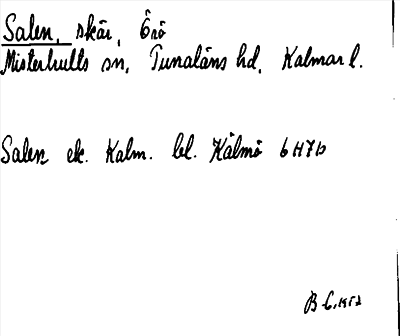 Salen, skär, Örö
Misterhults sn, Tunaläns hd, Kalmar l.
Salen ek. Kalm. bl. Kålmö 6H7b